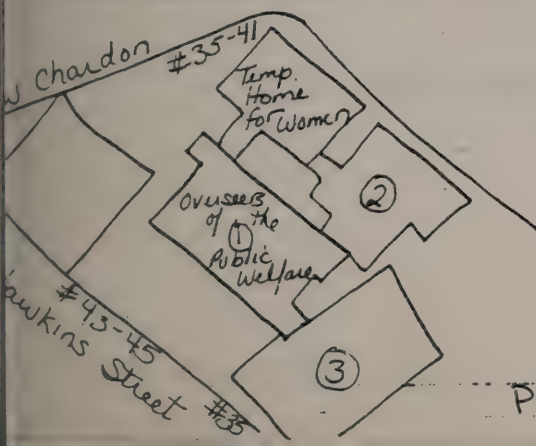 Chardon
#35-41
Temp.
Home
for Women
②
Overseers
of the
①
Public
Welfare
#43-45
Hawkins Street
#35
③
P